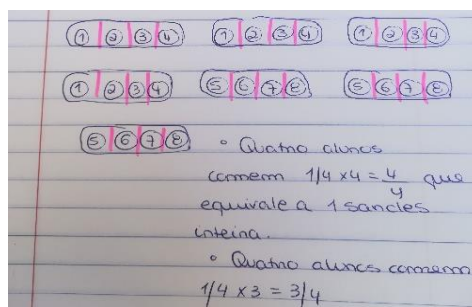 1 2 3 4 1 2 3 4 1 2 3 4
1 2 3 4 5 6 7 8 5 6 7 8
5 6 7 8
• Quatro alunos
comem 1/4 x 4 = 4/4 que
equivale a 1 sandes
inteira.
• Quatro alunos comem
1/4 x 3 = 3/4